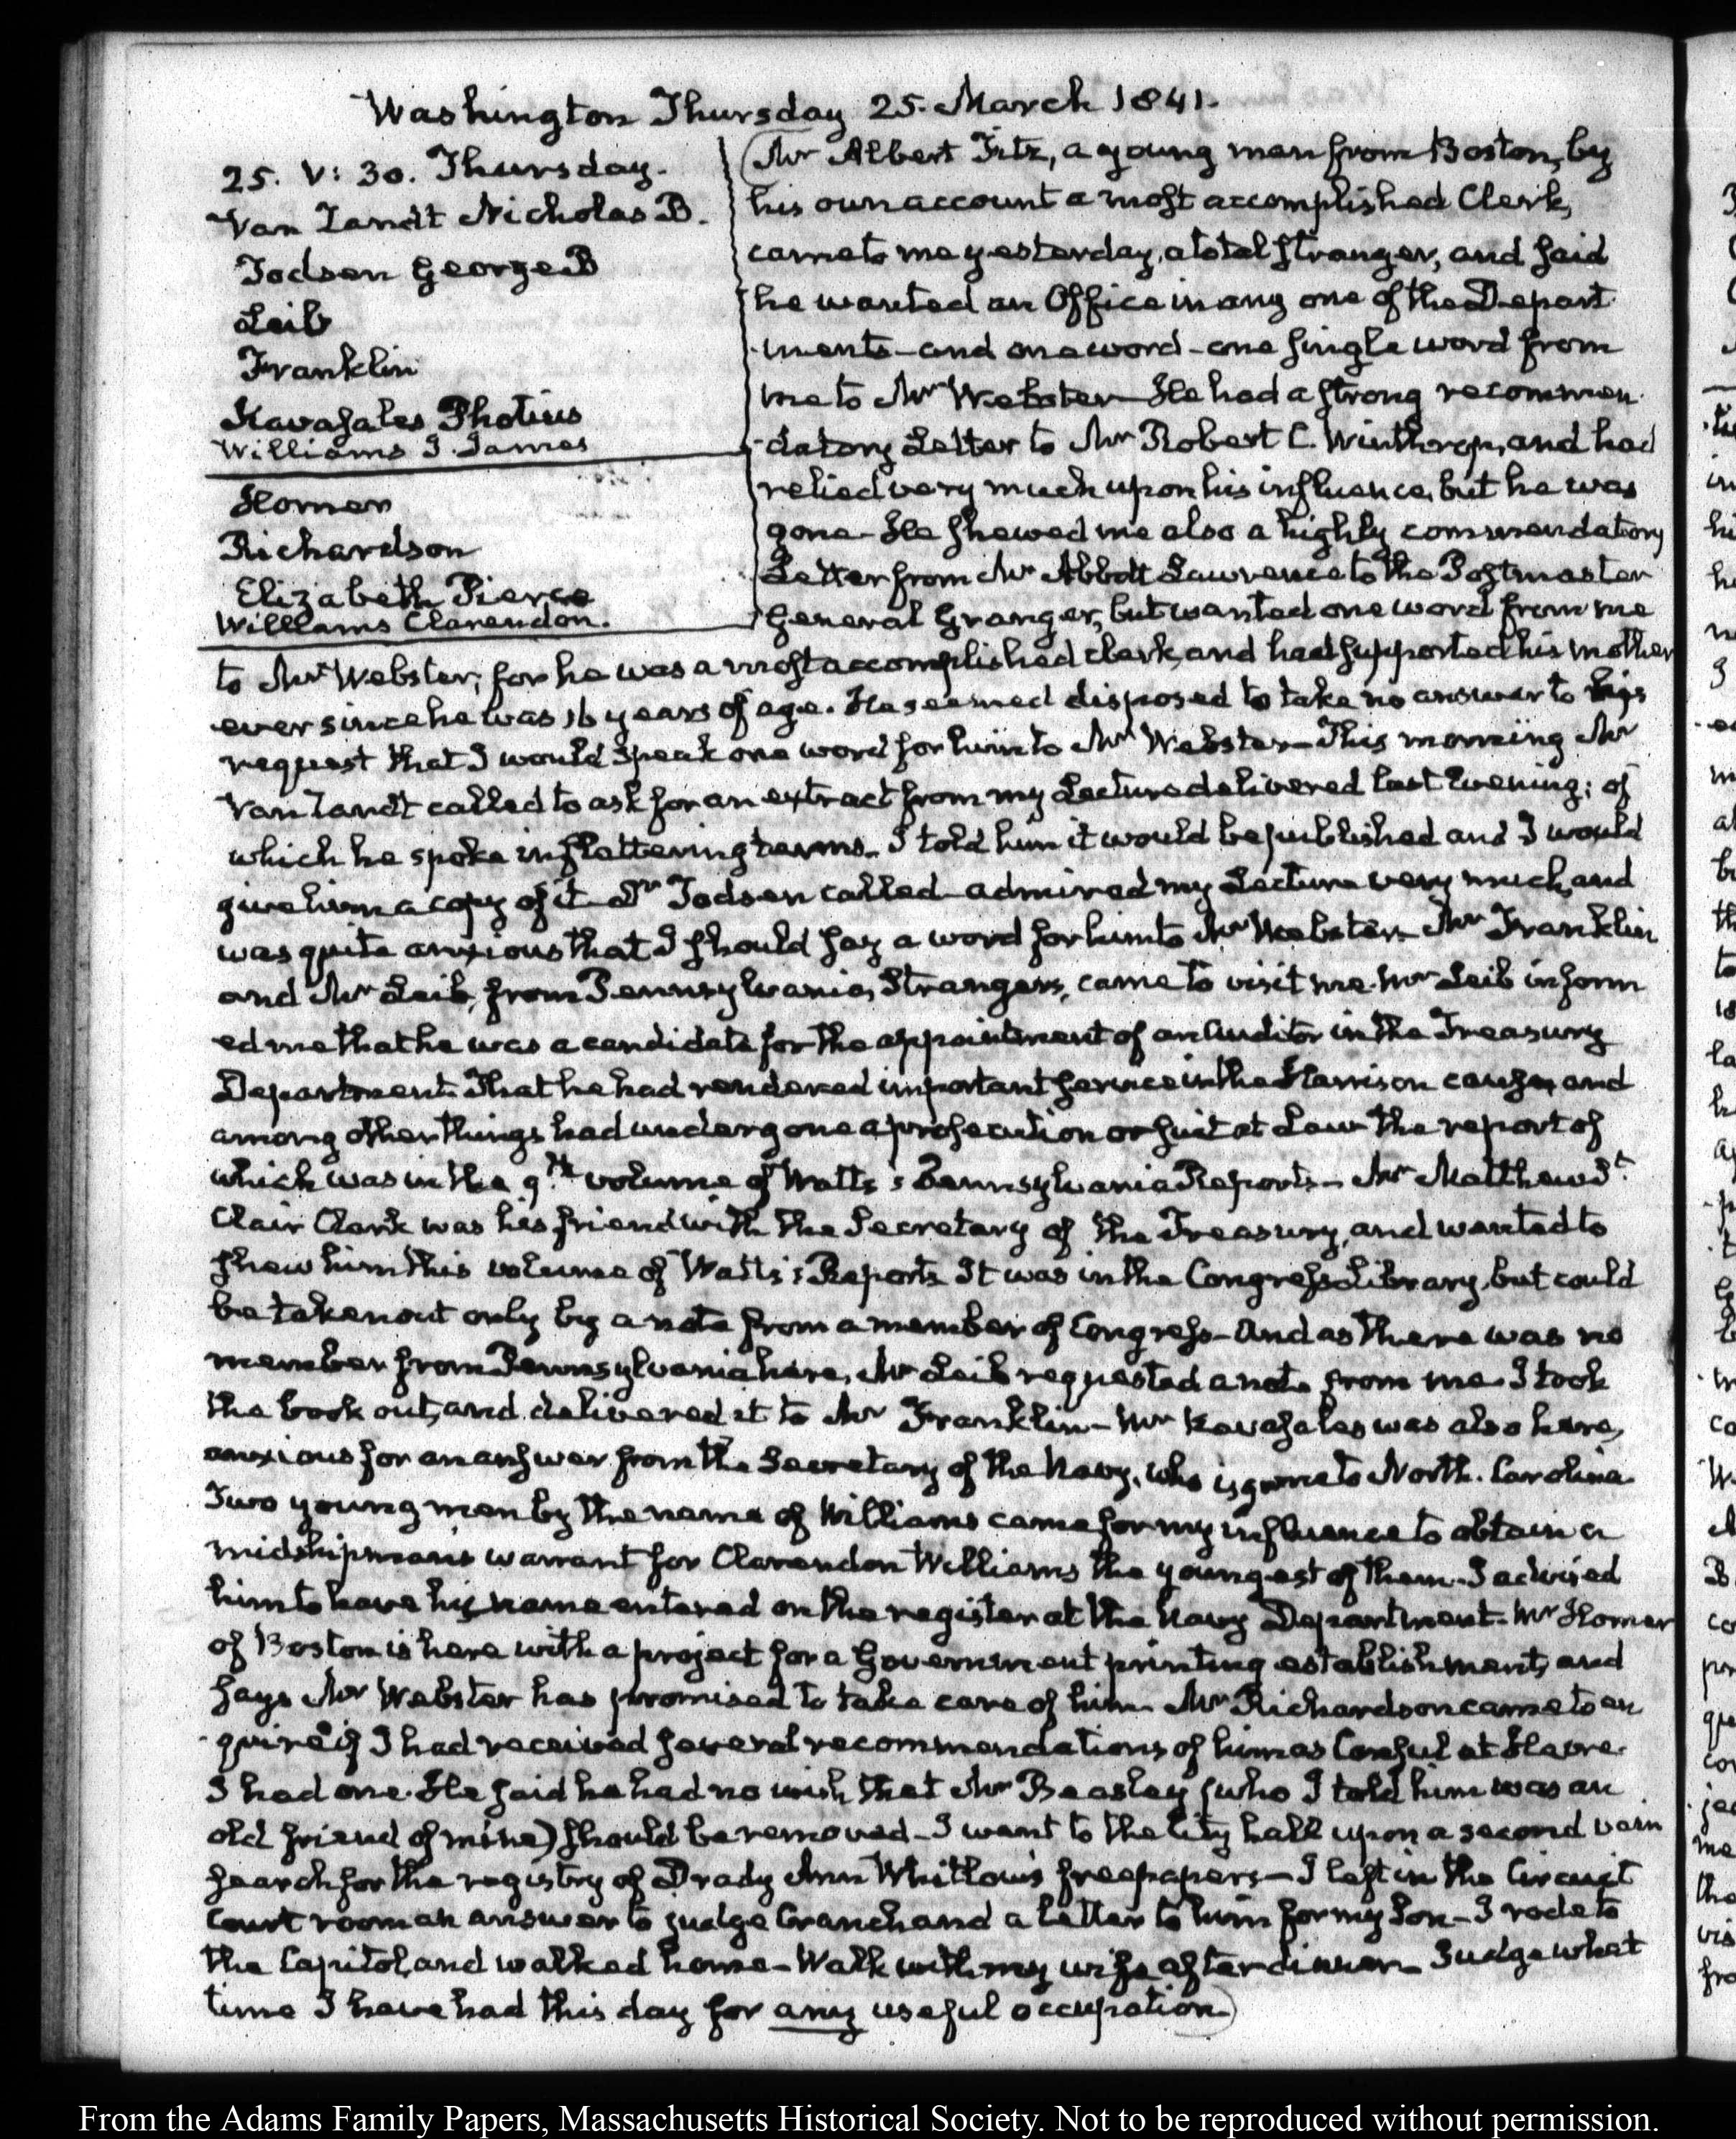 Washington Thursday 25. March 1841.
25. V: 30. Thursday.
Van Zandt Nicholas B.
Todsen George B
Leib
Franklin
Kavasales Photius
Williams J. James
Homer
Richardson
Elizabeth Pierce
Williams Clarendon.
(Mr Albert Fitz, a young man from Boston, by
his own account a most accomplished Clerk,
came to me yesterday, a total stranger, and said
he wanted an Office in any one of the Depart
-ments—and one word—one single word from
me to Mr Webster—He had a strong recommen-
-datory Letter to Mr Robert C. Winthrop, and had
relied very much upon his influence, but he was
gone—He shewed me also a highly commendatory
Letter from Mr Abbott Lawrence to the Postmaster
General Granger, but wanted one word from me
to Mr Webster; for he was a most accomplished clerk, and had supported his mother
ever since he was 16 years of age. He seemed disposed to take no answer to his
request that I would speak one word for him to Mr Webster—This morning Mr
Van Zandt called to ask for an extract from my Lecture delivered last Evening; of
which he spoke in flattering terms—I told him it would be published and I would
give him a copy of it—Dr Todsen called—admired my Lecture very much, and
was quite anxious that I should say a word for him to Mr Webster—Mr Franklin
and Mr Leib, from Pennsylvania, Strangers, came to visit me. Mr Leib inform
ed me that he was a candidate for the appointment of an Auditor in the Treasury
Department. That he had rendered important service in the Harrison cause, and
among other things had undergone a prosecution or suit at Law the report of
which was in the 9.th volume of Watts's Pennsylvania Reports—Mr Matthew St
Clair Clark was his friend with the Secretary of the Treasury, and wanted to
shew him this volume of Watts's Reports. It was in the Congress Library, but could
be taken out only by a note from a member of Congress—And as there was no
member from Pennsylvania here, Mr Leib requested a note from me. I took
the book out, and delivered it to Mr Franklin—Mr Kavasales was also here,
anxious for an answer from the Secretary of the Navy, who is gone to North. Carolina
Two young men by the name of Williams came for my influence to obtain a
midshipman's warrant for Clarendon Williams the youngest of them. I advised
him to have his name entered on the register at the Navy Department. Mr Homer
of Boston is here with a project for a Government printing establishment, and
says Mr Webster has promised to take care of him. Mr Richardson came to en
-quire if I had received several recommendations of him as Consul at Havre.
I had one. He said he had no wish that Mr Beasley (who I told him was an
old friend of mine) should be removed—I went to the City hall upon a second vain
search for the registry of Drady Ann Whitlow's free papers—I left in the Circuit
Court room an answer to judge Cranch and a letter to him for my Son—I rode to
the Capitol, and walked home—Walk with my wife after dinner—Judge what
time I have had this day for any useful occupation)
From the Adams Family Papers, Massachusetts Historical Society. Not to be reproduced without permission.